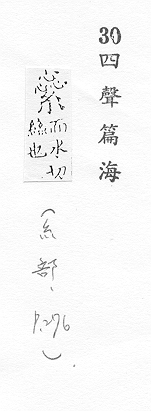 30 四聲篇海
繠 而水切
絲也
(糸部、P.296).